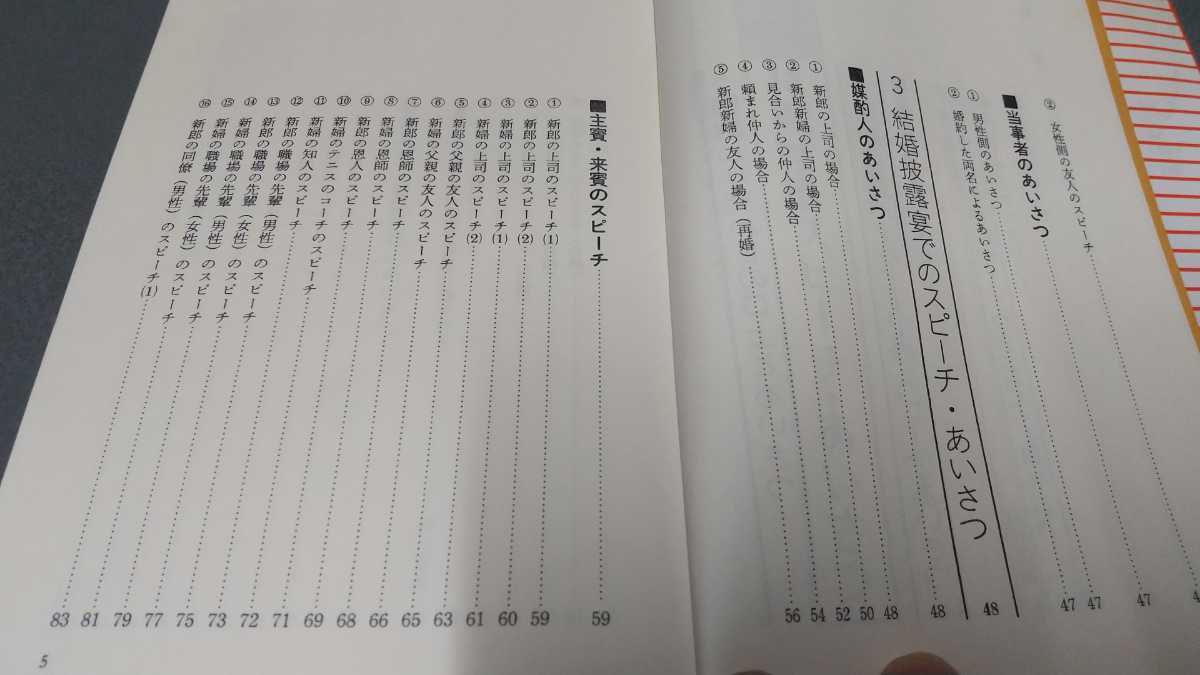 ② 女性側の友人のスピーチ
■当事者のあいさつ 47
① 男性側のあいさつ 47
② 婚約した両名によるあいさつ 47
3 結婚披露宴でのスピーチ・あいさつ 48
■媒酌人のあいさつ 48
① 新郎の上司の場合 48
② 新郎新婦の上司の場合 50
③ 見合いからの仲人の場合 52
④ 頼まれ仲人の場合 54
⑤ 新郎新婦の友人の場合（再婚） 56
■主賓・来賓のスピーチ 59
① 新郎の上司のスピーチ(1) 59
② 新郎の上司のスピーチ(2) 60
③ 新婦の上司のスピーチ(1) 61
④ 新婦の上司のスピーチ(2) 63
⑤ 新郎の父親の友人のスピーチ 65
⑥ 新婦の父親の友人のスピーチ 66
⑦ 新郎の恩師のスピーチ 68
⑧ 新婦の恩師のスピーチ 69
⑨ 新郎の恩人のスピーチ 71
⑩ 新婦のテニスのコーチのスピーチ 72
⑪ 新婦の知人のスピーチ 73
⑫ 新郎の職場の先輩（男性）のスピーチ 75
⑬ 新郎の職場の先輩（女性）のスピーチ 77
⑭ 新婦の職場の先輩（男性）のスピーチ 79
⑮ 新婦の職場の先輩（女性）のスピーチ 81
⑯ 新郎の同僚（男性）のスピーチ(1) 83
5